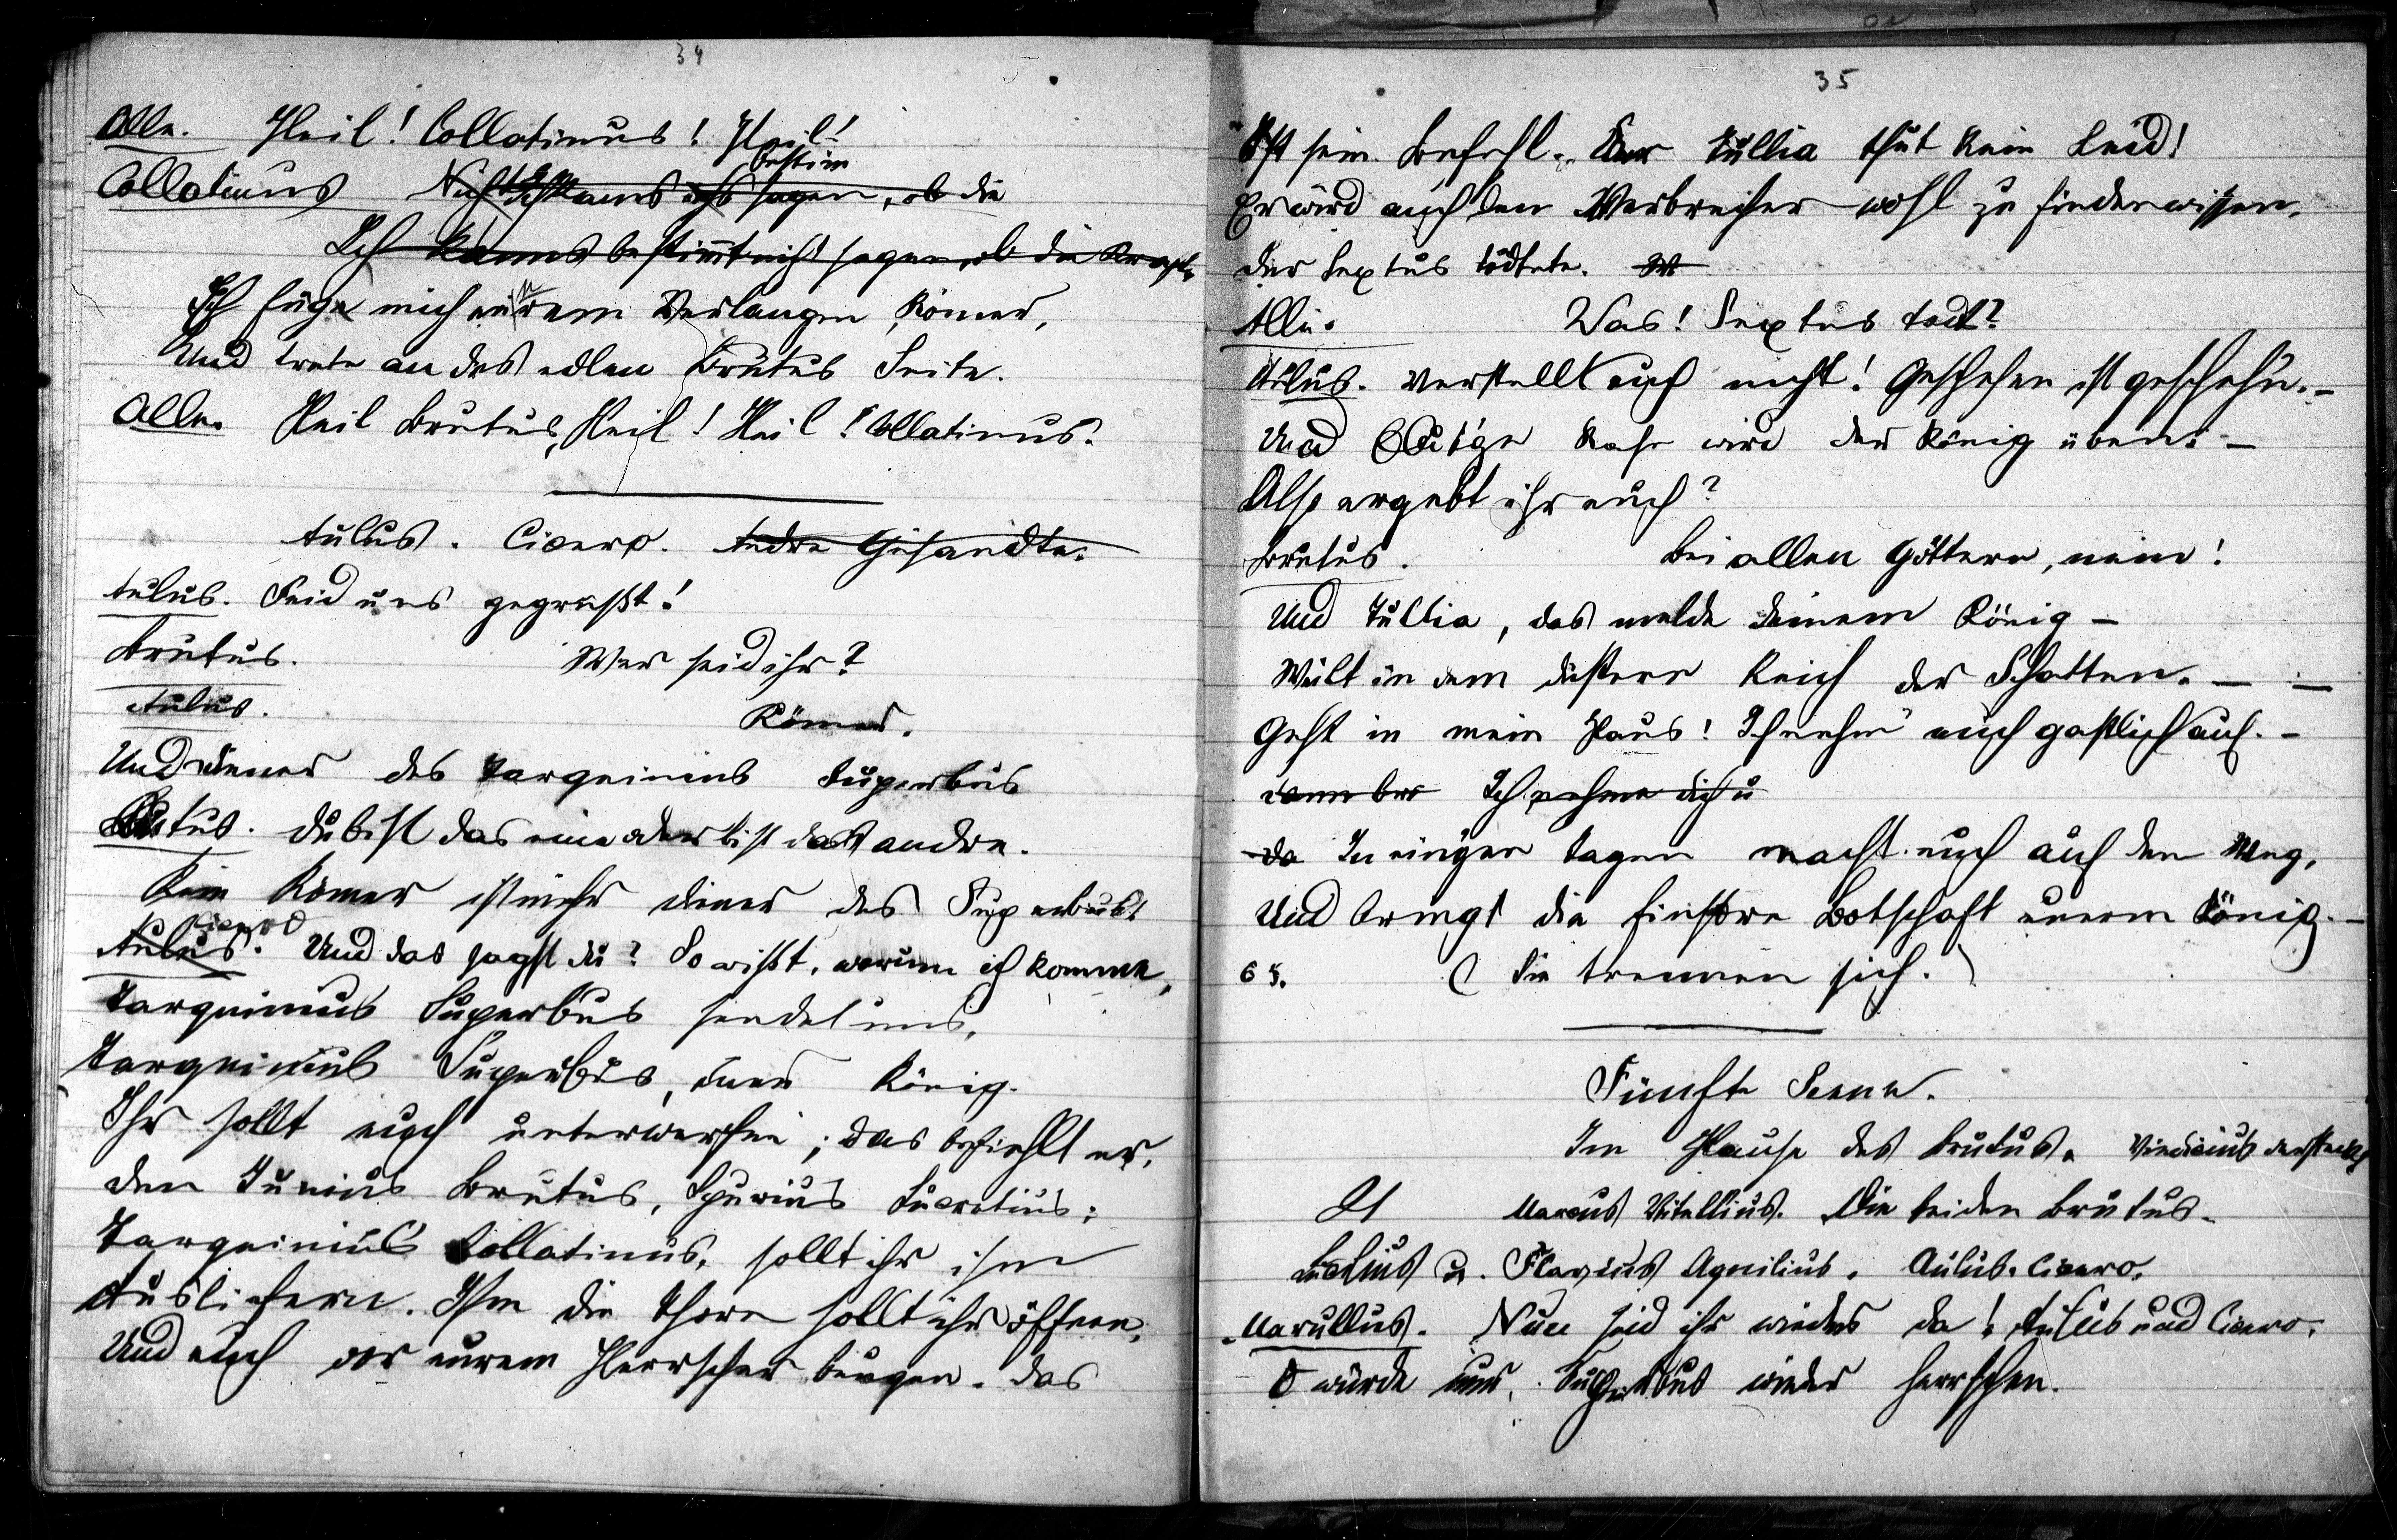 34
Alle. Heil! Collatinus! Heil!
bestim
Collatinus Nicht kanns ich sagen, ob die
Ich kanns bestimt nicht sagen, ob die
Ich füge mich eurem Verlangen, Römer,
Und trete an des edlen Brutus Seite.
Alle. Heil Brutus, Heil! Heil! Collatinus.
Aulus. Cicero. Andre Gesandte.
Aulus. Seid uns gegrüßt!
Brutus. Wer seid ihr?
Aulus. Römer.
Und Diener des Tarquinius Superbus
Brutus. Du bist das eine oder bist das andre.
Kein Römer ist mehr Diener des Superbus!
Cicero
Aulus. Und das sagst du? So wißt, warum ich komme,
Tarquinius Superbus sendet uns,
Tarquinius Superbus, euer König.
Ihr sollt euch unterwerfen; das befiehlt er,
Den Junius Brutus, Spurius Lucretius;
Tarquinius Collatinus, sollt ihr ihm
Ausliefern. Ihm die Thore sollt ihr öffnen,
Und euch vor eurem Herrscher beugen. Das
35
Ist sein Befehl. Der Tullia thut kein Leid!
Er wird auch den Verbrecher wohl zu finden wissen,
Der Sextus tödtete. W
Alle. Was! Sextus todt?
Aulus. Verstellt euch nicht! Geschehen ist geschehn. –
Und blutige Rache wird der König üben. –
Also ergebt ihr euch?
Brutus. Bei allen Göttern, nein!
Und Tullia, das melde deinem König –
Weilt in dem düstern Reich der Schatten. – –
Geht in mein Haus! Ich nehm' euch gastlich auf. –
Ich nehme dich u
da In einigen Tagen macht euch auf den Weg,
Und bringt die finstre Botschaft eurem König. –
65. (Sie trennen sich.)
Fünfte Scene.
Im Hause des Brutus. Vindicius versteckt
Marcus Vitellius. Die beiden Brutus.
Lucius u. Flavius Aquilius. Aulus. Cicero.
Marullus. Nun seid ihr wieder da! Aulus und Cicero.
O würde nun, Superbus wieder herrschen.